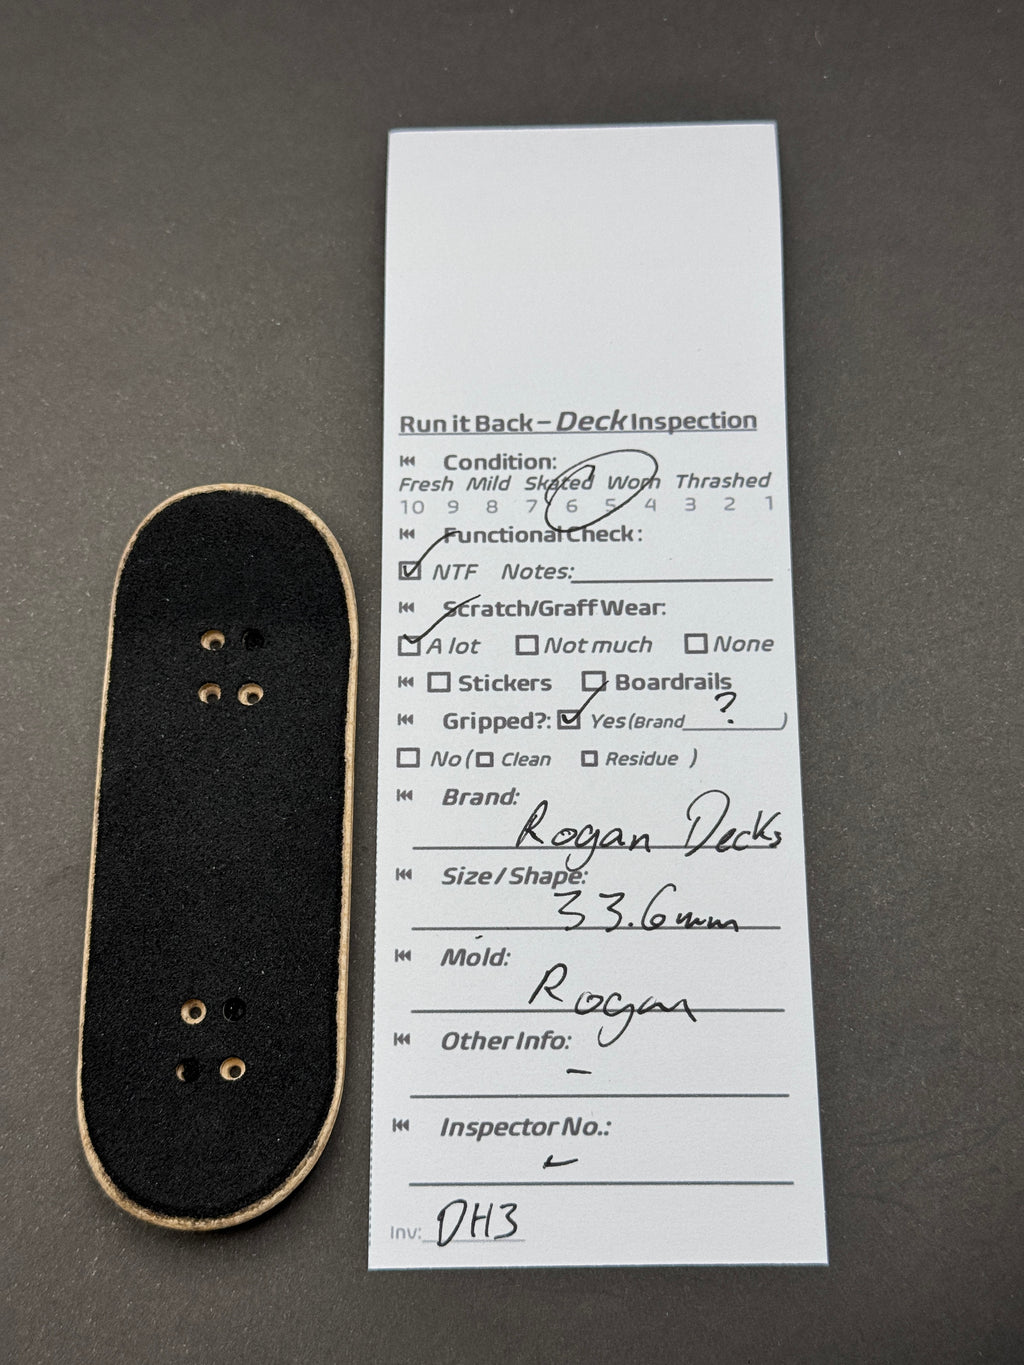 Run it Back – Deck Inspection
Condition:
Fresh Mild Skated Worn Thrashed
10 9 8 7 6 5 4 3 2 1
Functional Check:
NTF Notes:
Scratch/Graff Wear:
A lot Not much None
Stickers Boardrails
Gripped?: Yes (Brand ? )
No ( Clean Residue )
Brand:
Rogan Decks
Size / Shape:
33.6mm
Mold:
Rogan
Other Info:
–
Inspector No.:
Inv: DH3